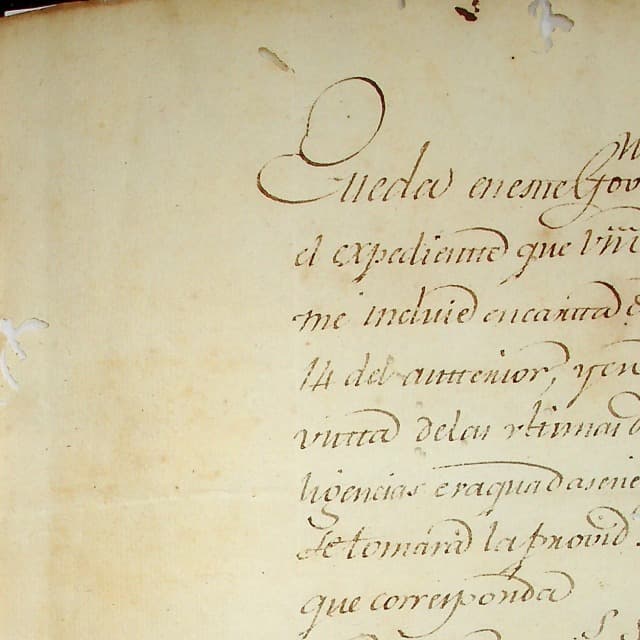 Queda en este Gov
el expediente que
me incluió en carta
14 del antterior, y en
vistta de las ultimas
ligencias eraquadas en e
se tomará la provid
que corresponda